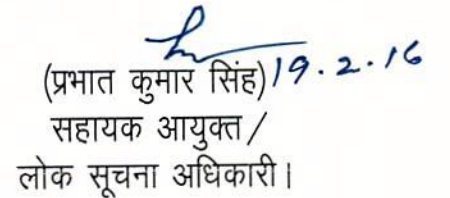 (प्रभात कुमार सिंह) 19.2.16
सहायक आयुक्त /
लोक सूचना अधिकारी।